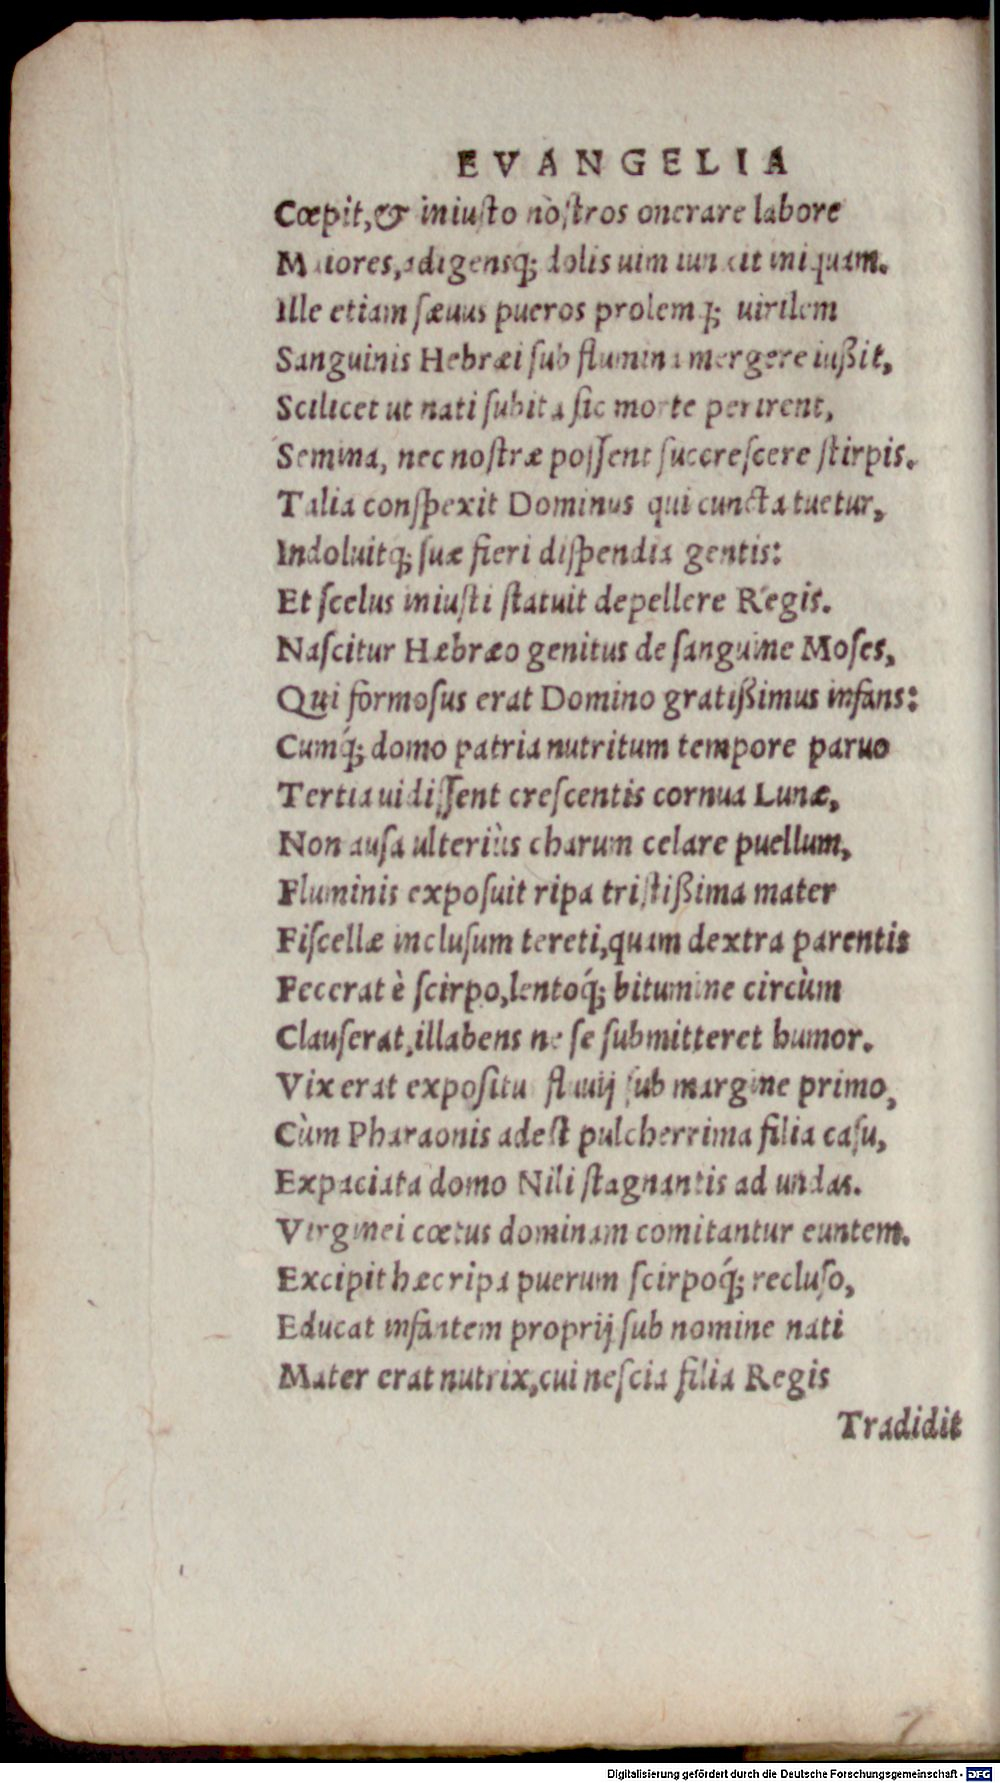 EVANGELIA
Cœpit, & iniuſto noſtros onerare labore
Maiores, adigensq́; dolis uim iunxit iniquam.
Ille etiam ſæuus pueros prolemq́; uirilem
Sanguinis Hebræi ſub flumina mergere iußit,
Scilicet ut nati ſubita ſic morte perirent,
Semina, nec noſtræ poſſent ſuccreſcere ſtirpis.
Talia conſpexit Dominus qui cuncta tuetur,
Indoluitq́; ſuæ fieri diſpendia gentis:
Et ſcelus iniuſti ſtatuit depellere Regis.
Naſcitur Hæbræo genitus de ſanguine Moſes,
Qui formoſus erat Domino gratißimus infans:
Cumq́; domo patria nutritum tempore paruo
Tertia uidiſſent creſcentis cornua Lunæ,
Non auſa ulteriùs charum celare puellum,
Fluminis expoſuit ripa triſtißima mater
Fiſcellæ incluſum tereti, quam dextra parentis
Fecerat è ſcirpo, lentoq́; bitumine circùm
Clauſerat, illabens ne ſe ſubmitteret humor.
Vix erat expoſitu fluuij ſub margine primo,
Cùm Pharaonis adeſt pulcherrima filia caſu,
Expaciata domo Nili ſtagnantis ad undas.
Virginei cœtus dominam comitantur euntem.
Excipit hæc ripa puerum ſcirpoq́; recluſo,
Educat infantem proprij ſub nomine nati
Mater erat nutrix, cui neſcia filia Regis
Tradidit
Digitalisierung gefördert durch die Deutsche Forschungsgemeinschaft - DFG